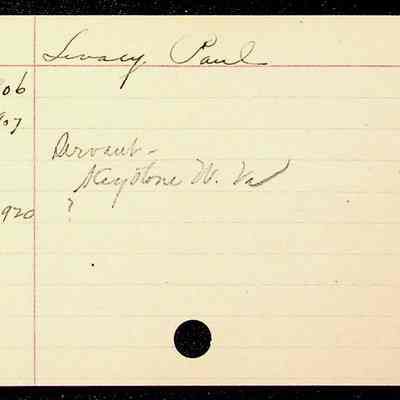 Paul
06
907
Servant -
Keystone W. Va
?
920